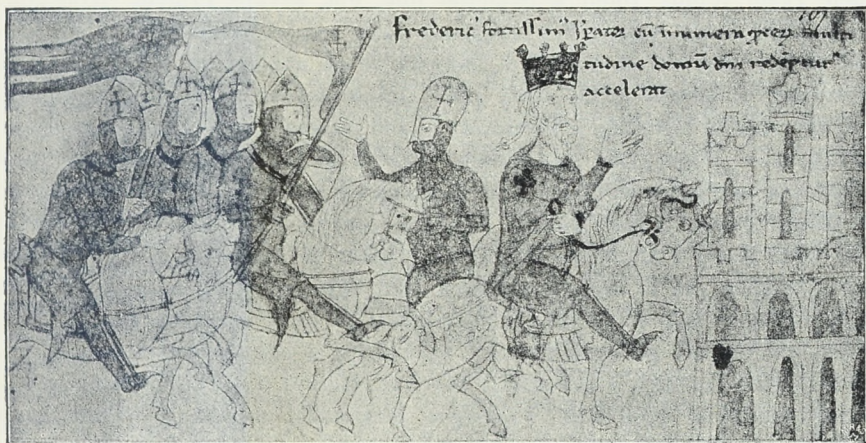 107
frederic' fortissim' Ip̄ator cū īnumera ꝓceꝝ multi
tudine domū dn̄i redēptur'
accelerat